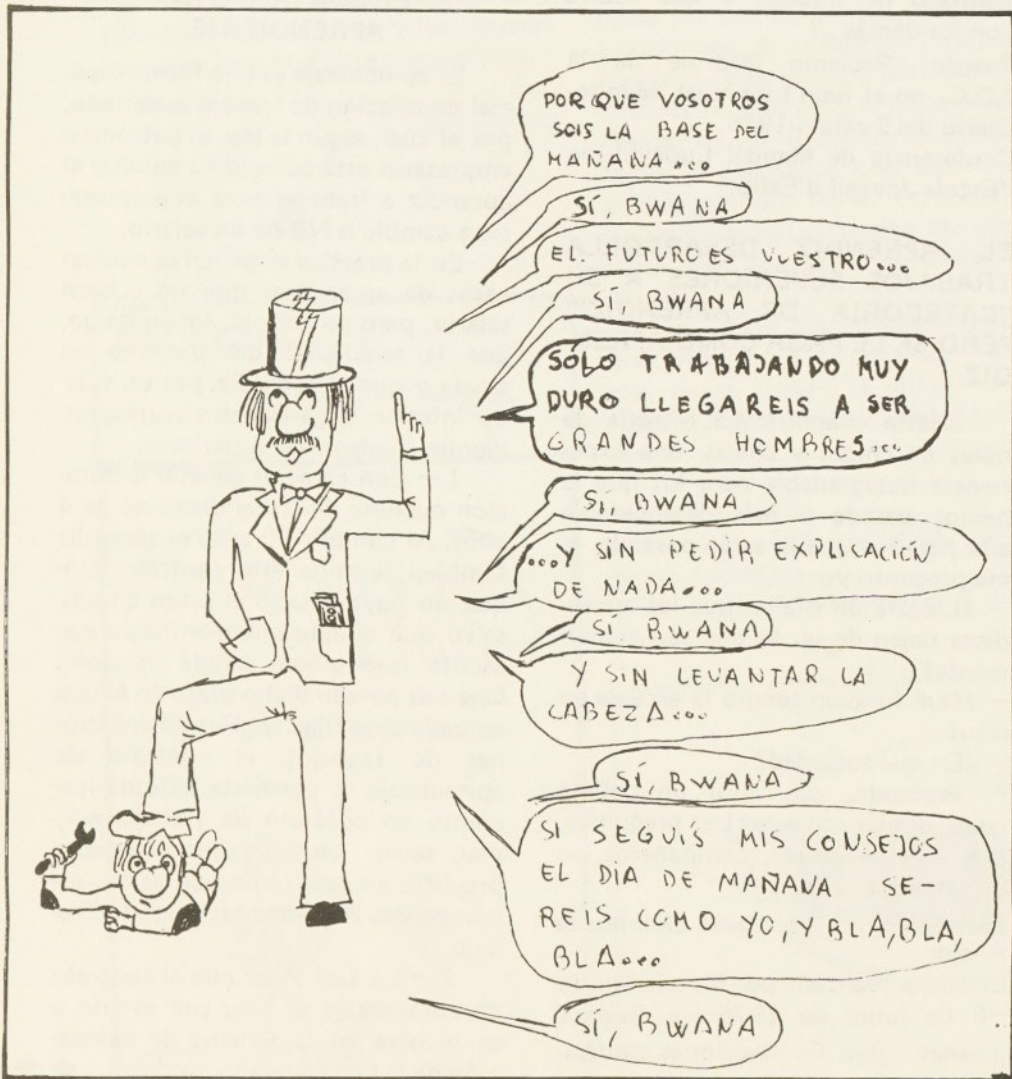 POR QUE VOSOTROS
SOIS LA BASE DEL
MAÑANA...
SÍ, BWANA
EL FUTURO ES VUESTRO...
SÍ, BWANA
SÓLO TRABAJANDO MUY
DURO LLEGAREIS A SER
GRANDES HOMBRES...
SÍ, BWANA
...Y SIN PEDIR EXPLICACIÓN
DE NADA...
SÍ, BWANA
Y SIN LEVANTAR LA
CABEZA...
SÍ, BWANA
SI SEGUÍS MIS CONSEJOS
EL DIA DE MAÑANA SE-
REIS COMO YO, Y BLA, BLA,
BLA...
SÍ, BWANA